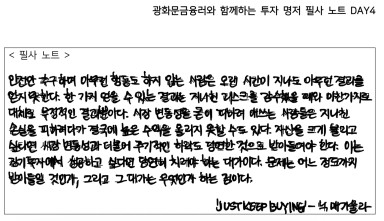 광화문금융러와 함께하는 투자 명저 필사 노트 DAY4
< 필사 노트 >
안전만 추구하며 아무런 행동도 하지 않는 사람은 오랜 시간이 지나도 아무런 결과를
얻지 못한다. 한 가지 얻을 수 있는 결과는 지나친 리스크를 감수했을 때와 마찬가지로
대체로 부정적인 결과뿐이다. 시장 변동성을 줄이 피하려 애쓰는 사람들은 지나친
손실을 피하려다가 결국에 높은 수익을 올리지 못할 수도 있다. 자산을 크게 불리고
싶다면 시장 변동성과 더불어 주기적인 하락도 당연한 것으로 받아들여야 한다. 이는
장기투자에서 성공하고 싶다면 당연히 치러야 하는 대가이다. 문제는 어느 정도까지
받아들일 것인가, 그리고 그 대가는 무엇인가 하는 점이다.
『JUST KEEP BUYING』 - 닉 매기울리